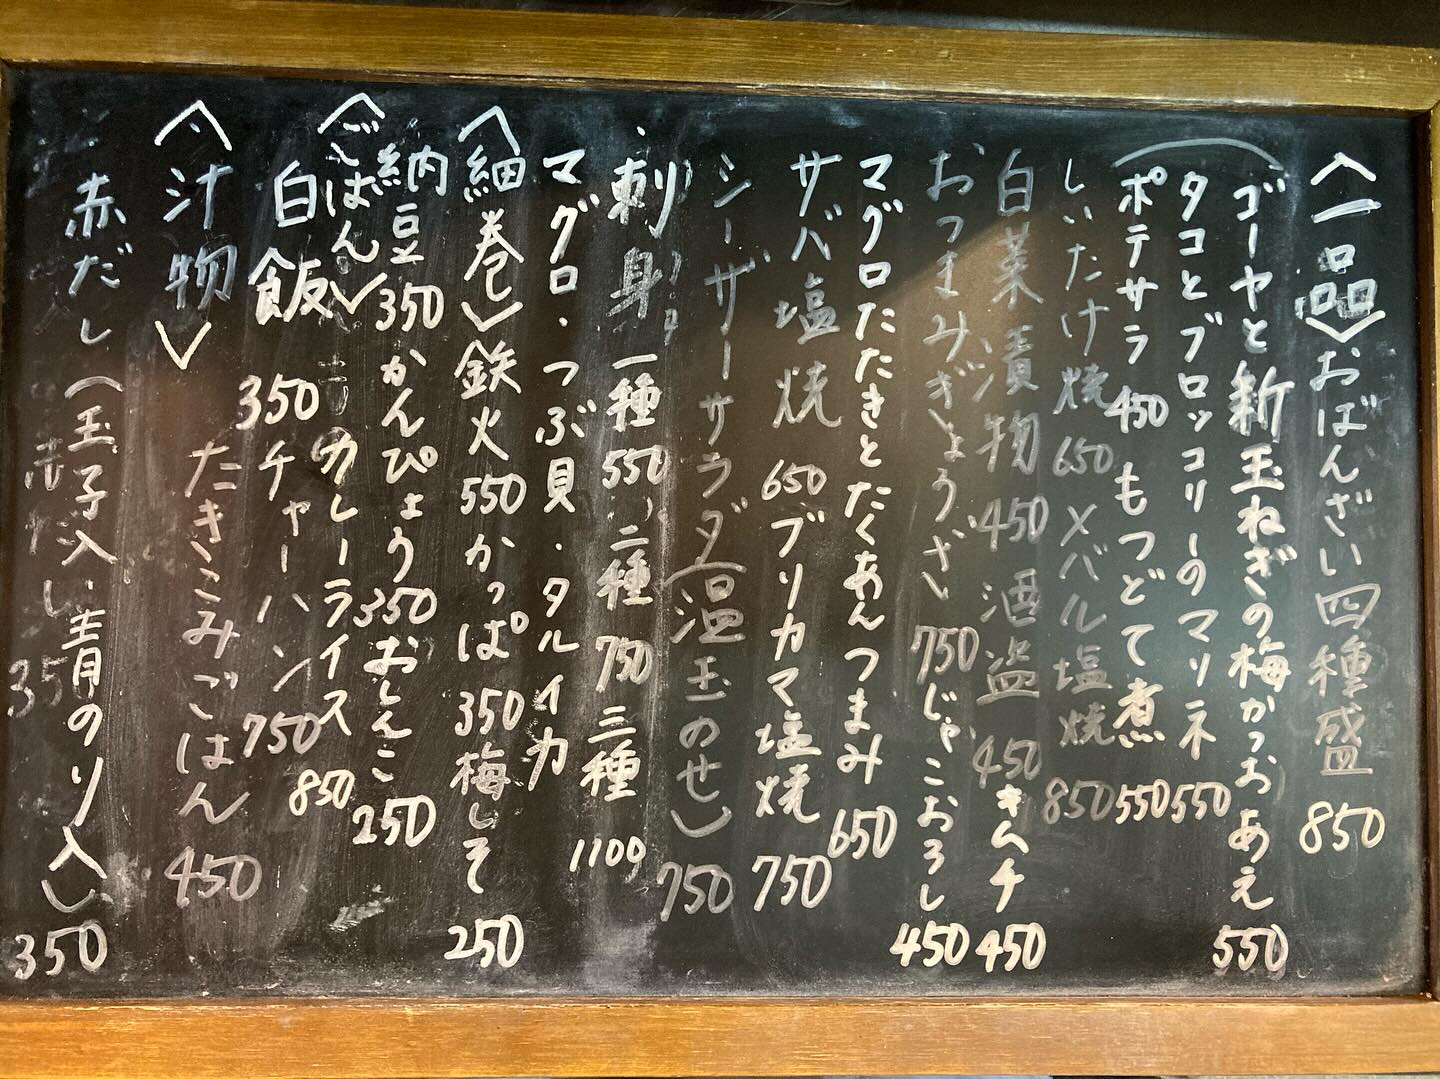 〈一品〉おばんざい四種盛 850
ゴーヤと新玉ねぎの梅かつおあえ 550
タコとブロッコリーのマリネ 550
ポテサラ 450 もつどて煮 550
しいたけ焼 650 メバル塩焼 850
白菜漬物 450 酒盗 450 キムチ 450
おつまみぎょうざ 750 じゃこおろし 450
マグロたたきとたくあんつまみ 650
サバ塩焼 650 ブリカマ塩焼 750
シーザーサラダ(温玉のせ) 750
刺身 一種 550、二種 750 三種 1100
マグロ・つぶ貝・タルイカ
〈細巻〉鉄火 550 かっぱ 350 梅しそ 250
納豆 350 かんぴょう 350 おしんこ 250
〈ごはん〉カレーライス 850
白飯 350 チャーハン 750
たきこみごはん 450
〈汁物〉
赤だし(玉子入い青のり入) 350